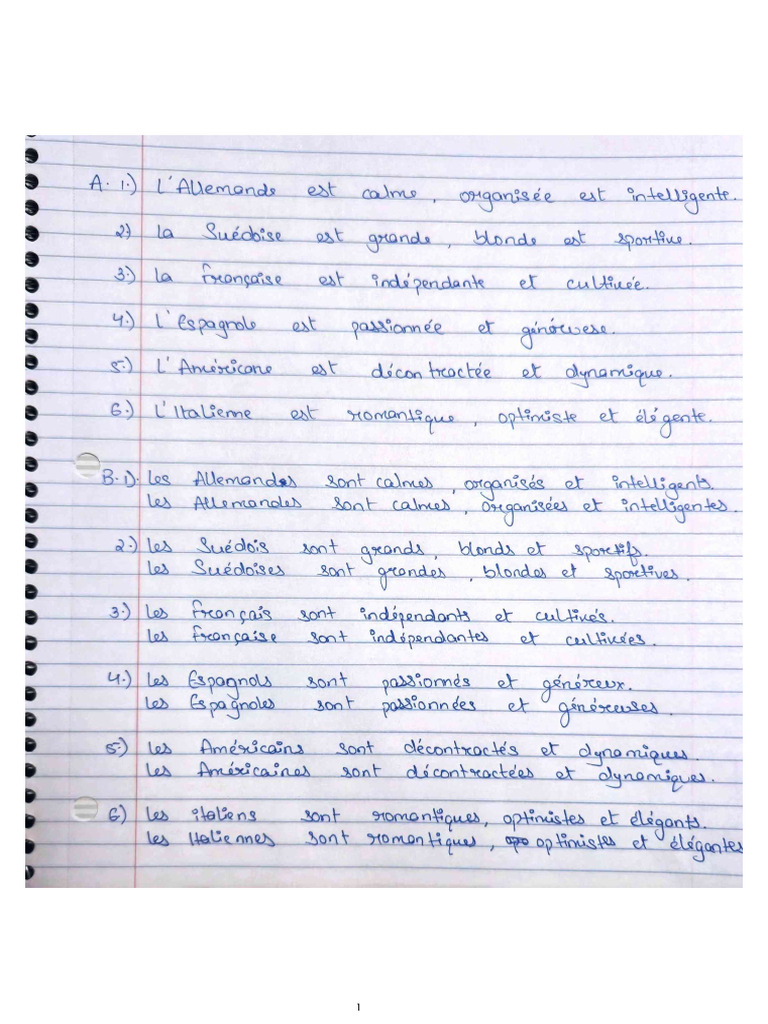 A. 1.) L'Allemande est calme, organisée est intelligente.
2.) La Suédoise est grande, blonde est sportive.
3.) La française est indépendante et cultivée.
4.) L'Espagnole est passionnée et généreuse.
5.) L'Américane est décontractée et dynamique.
6.) L'Italienne est romantique, optimiste et élégente.
B. 1). Les Allemands sont calmes, organisés et intelligents.
Les Allemandes sont calmes, organisées et intelligentes.
2.) Les Suédois sont grands, blonds et sportifs.
Les Suédoises sont grandes, blondes et sportives.
3.) Les français sont indépendants et cultivés.
Les française sont indépendantes et cultivées.
4.) Les Espagnols sont passionnés et généreux.
Les Espagnoles sont passionnées et généreuses.
5.) Les Américains sont décontractés et dynamiques.
Les Américaines sont décontractées et dynamiques.
6.) Les italiens sont romantiques, optimistes et élégants.
Les Italiennes sont romantiques, optimistes et élégantes
1